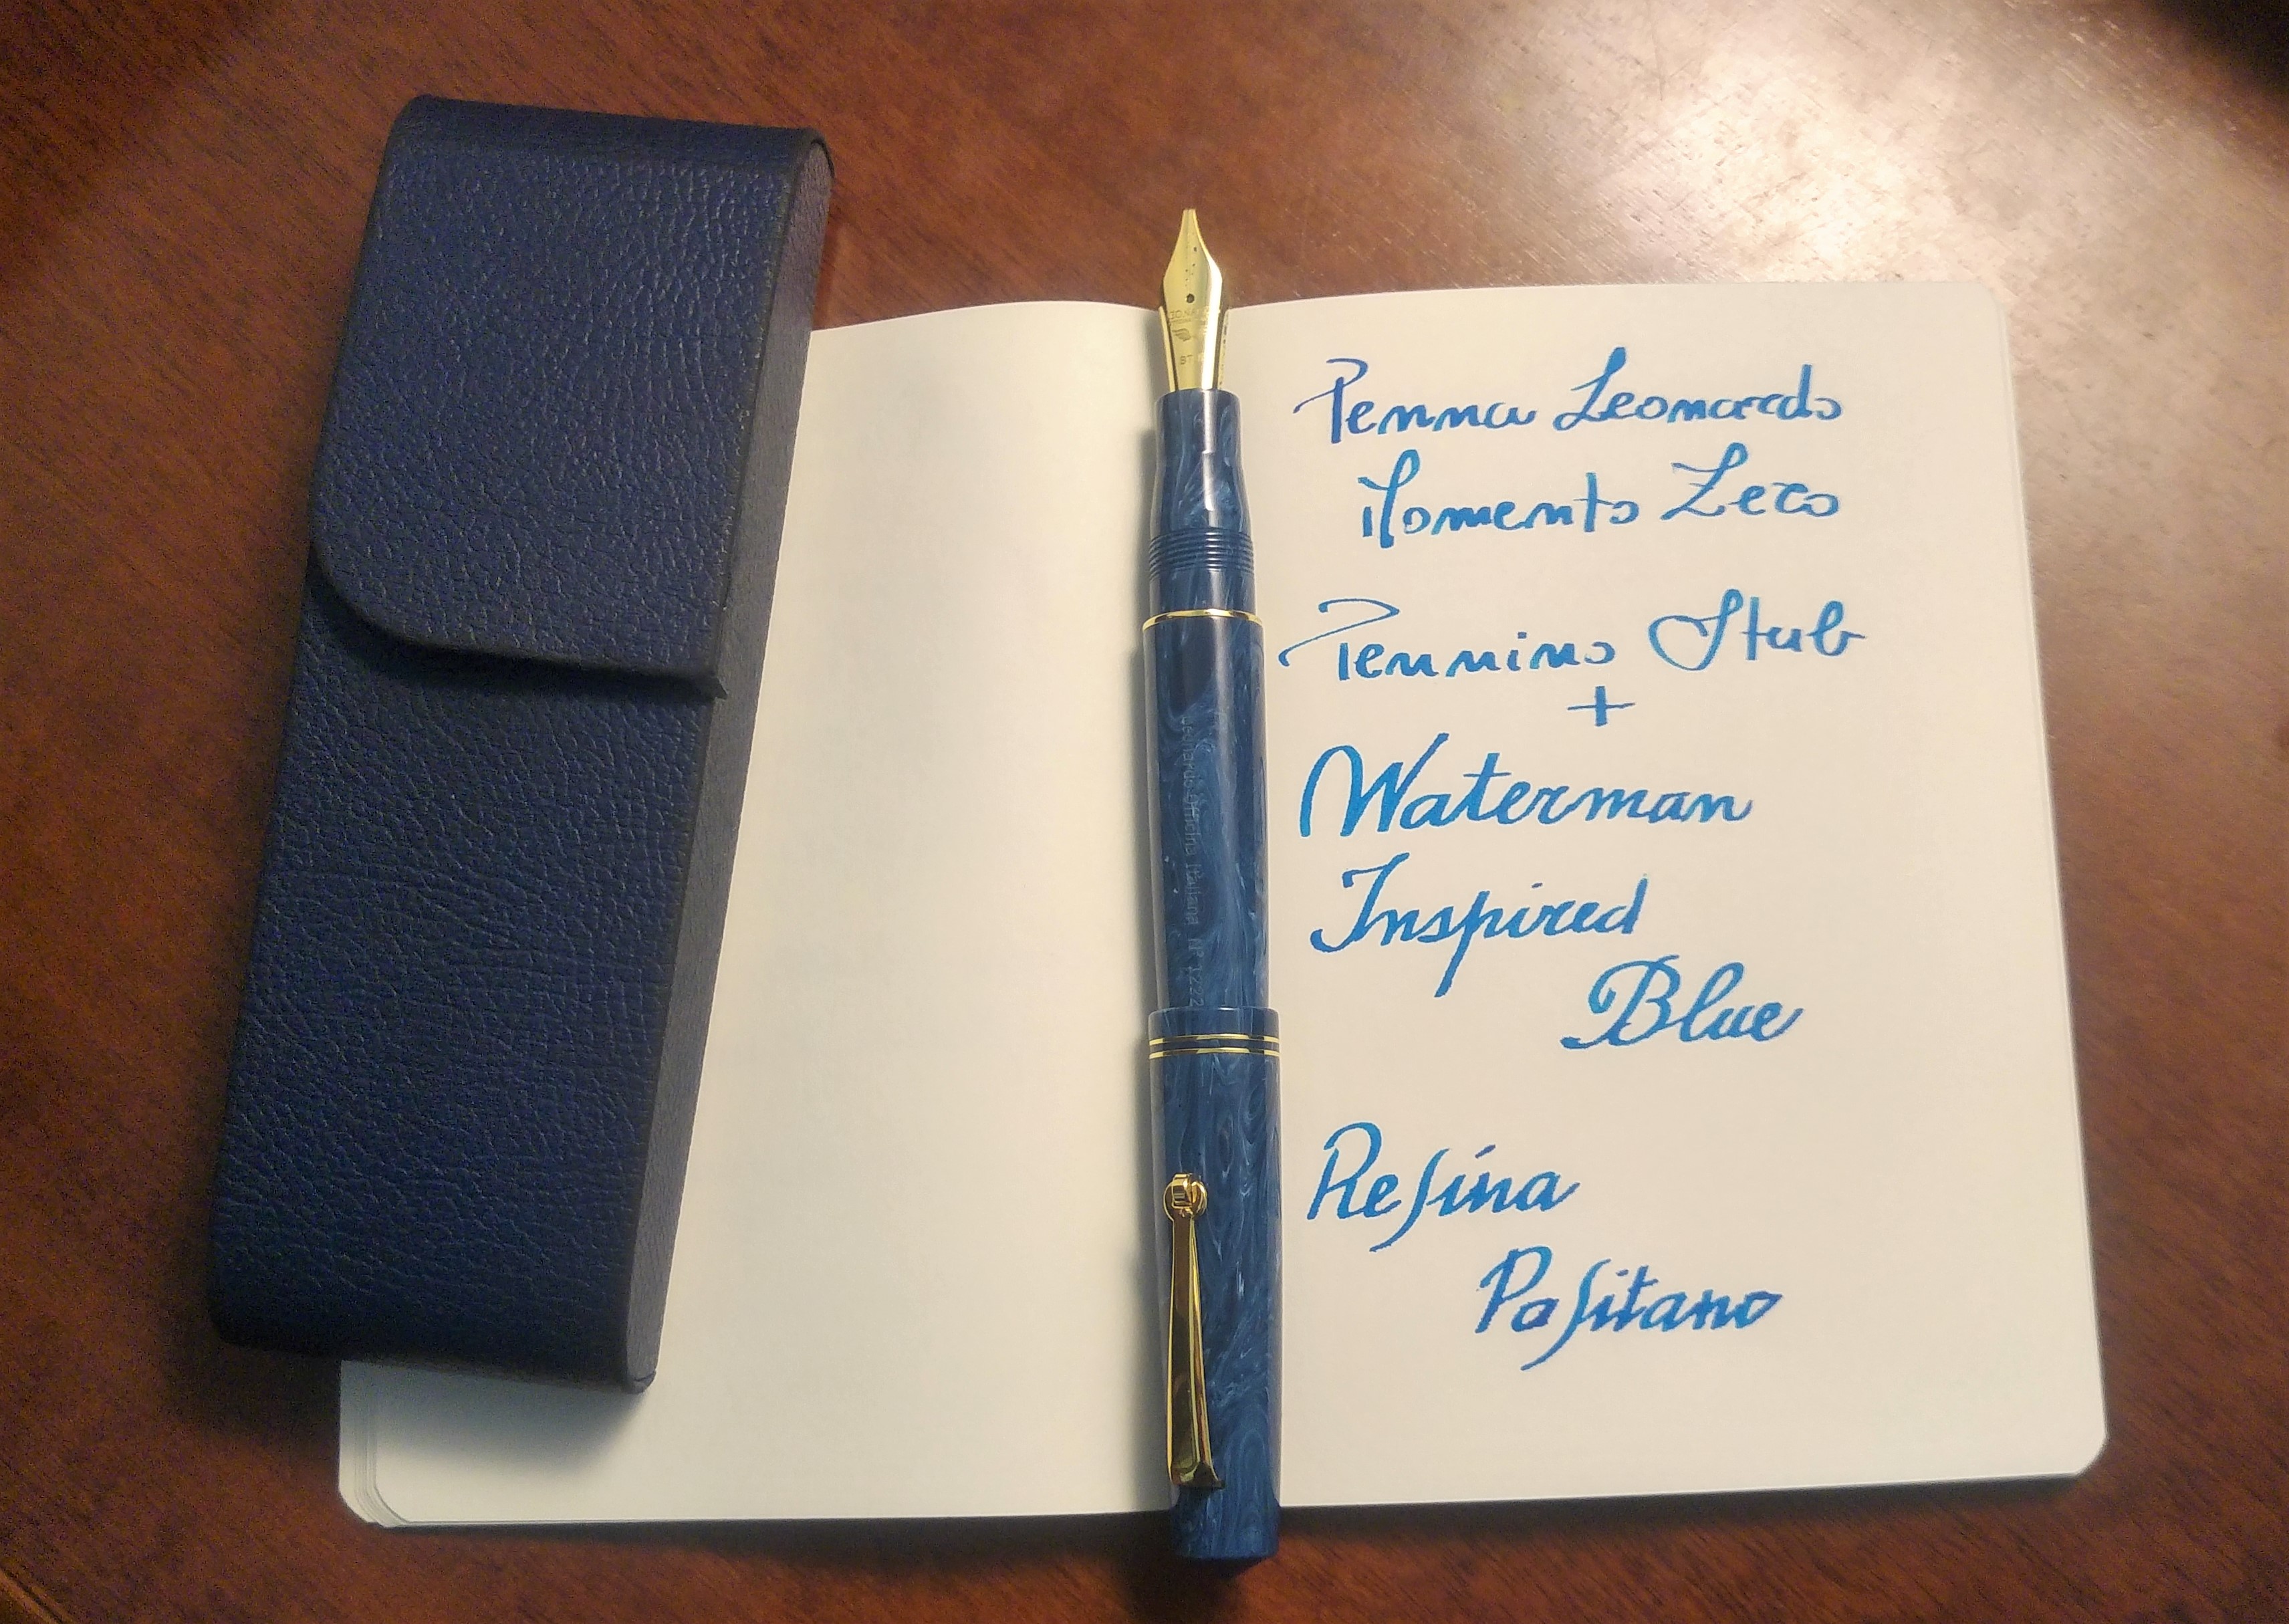 Penna Leonardo
Momento Zero
Pennino Stub
+
Waterman
Inspired
Blue
Resina
Positano
Leonardo Officina Italiana N°